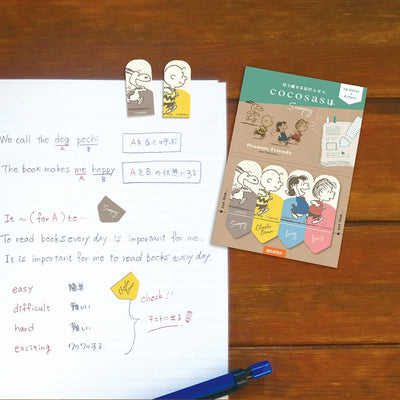 We call the dog pochi.
A B
AをBと呼ぶ
The book makes me happy
A B
AをBの状態にする
It ~ (for A) to…
Snoopy
To read books every day is important for me.
It is important for me to read books every day.
easy 簡単
difficult 難しい
hard 難しい
exciting ワクワクする
Charlie Brown
check!!
テストに出る
切り離せる付せん
cocosasu
Snoopy
Peanuts Friends
Snoopy
Charlie Brown
Lucy
Linus